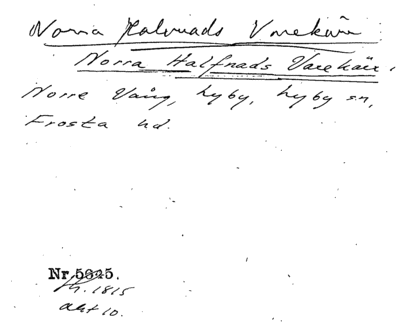 Norra Halvnads Varekärr
Norra Halfnads Varekärr.
Norre Vång, Lyby, Lyby sn,
Frosta hd.
Nr.
Lh. 1815
akt 10.